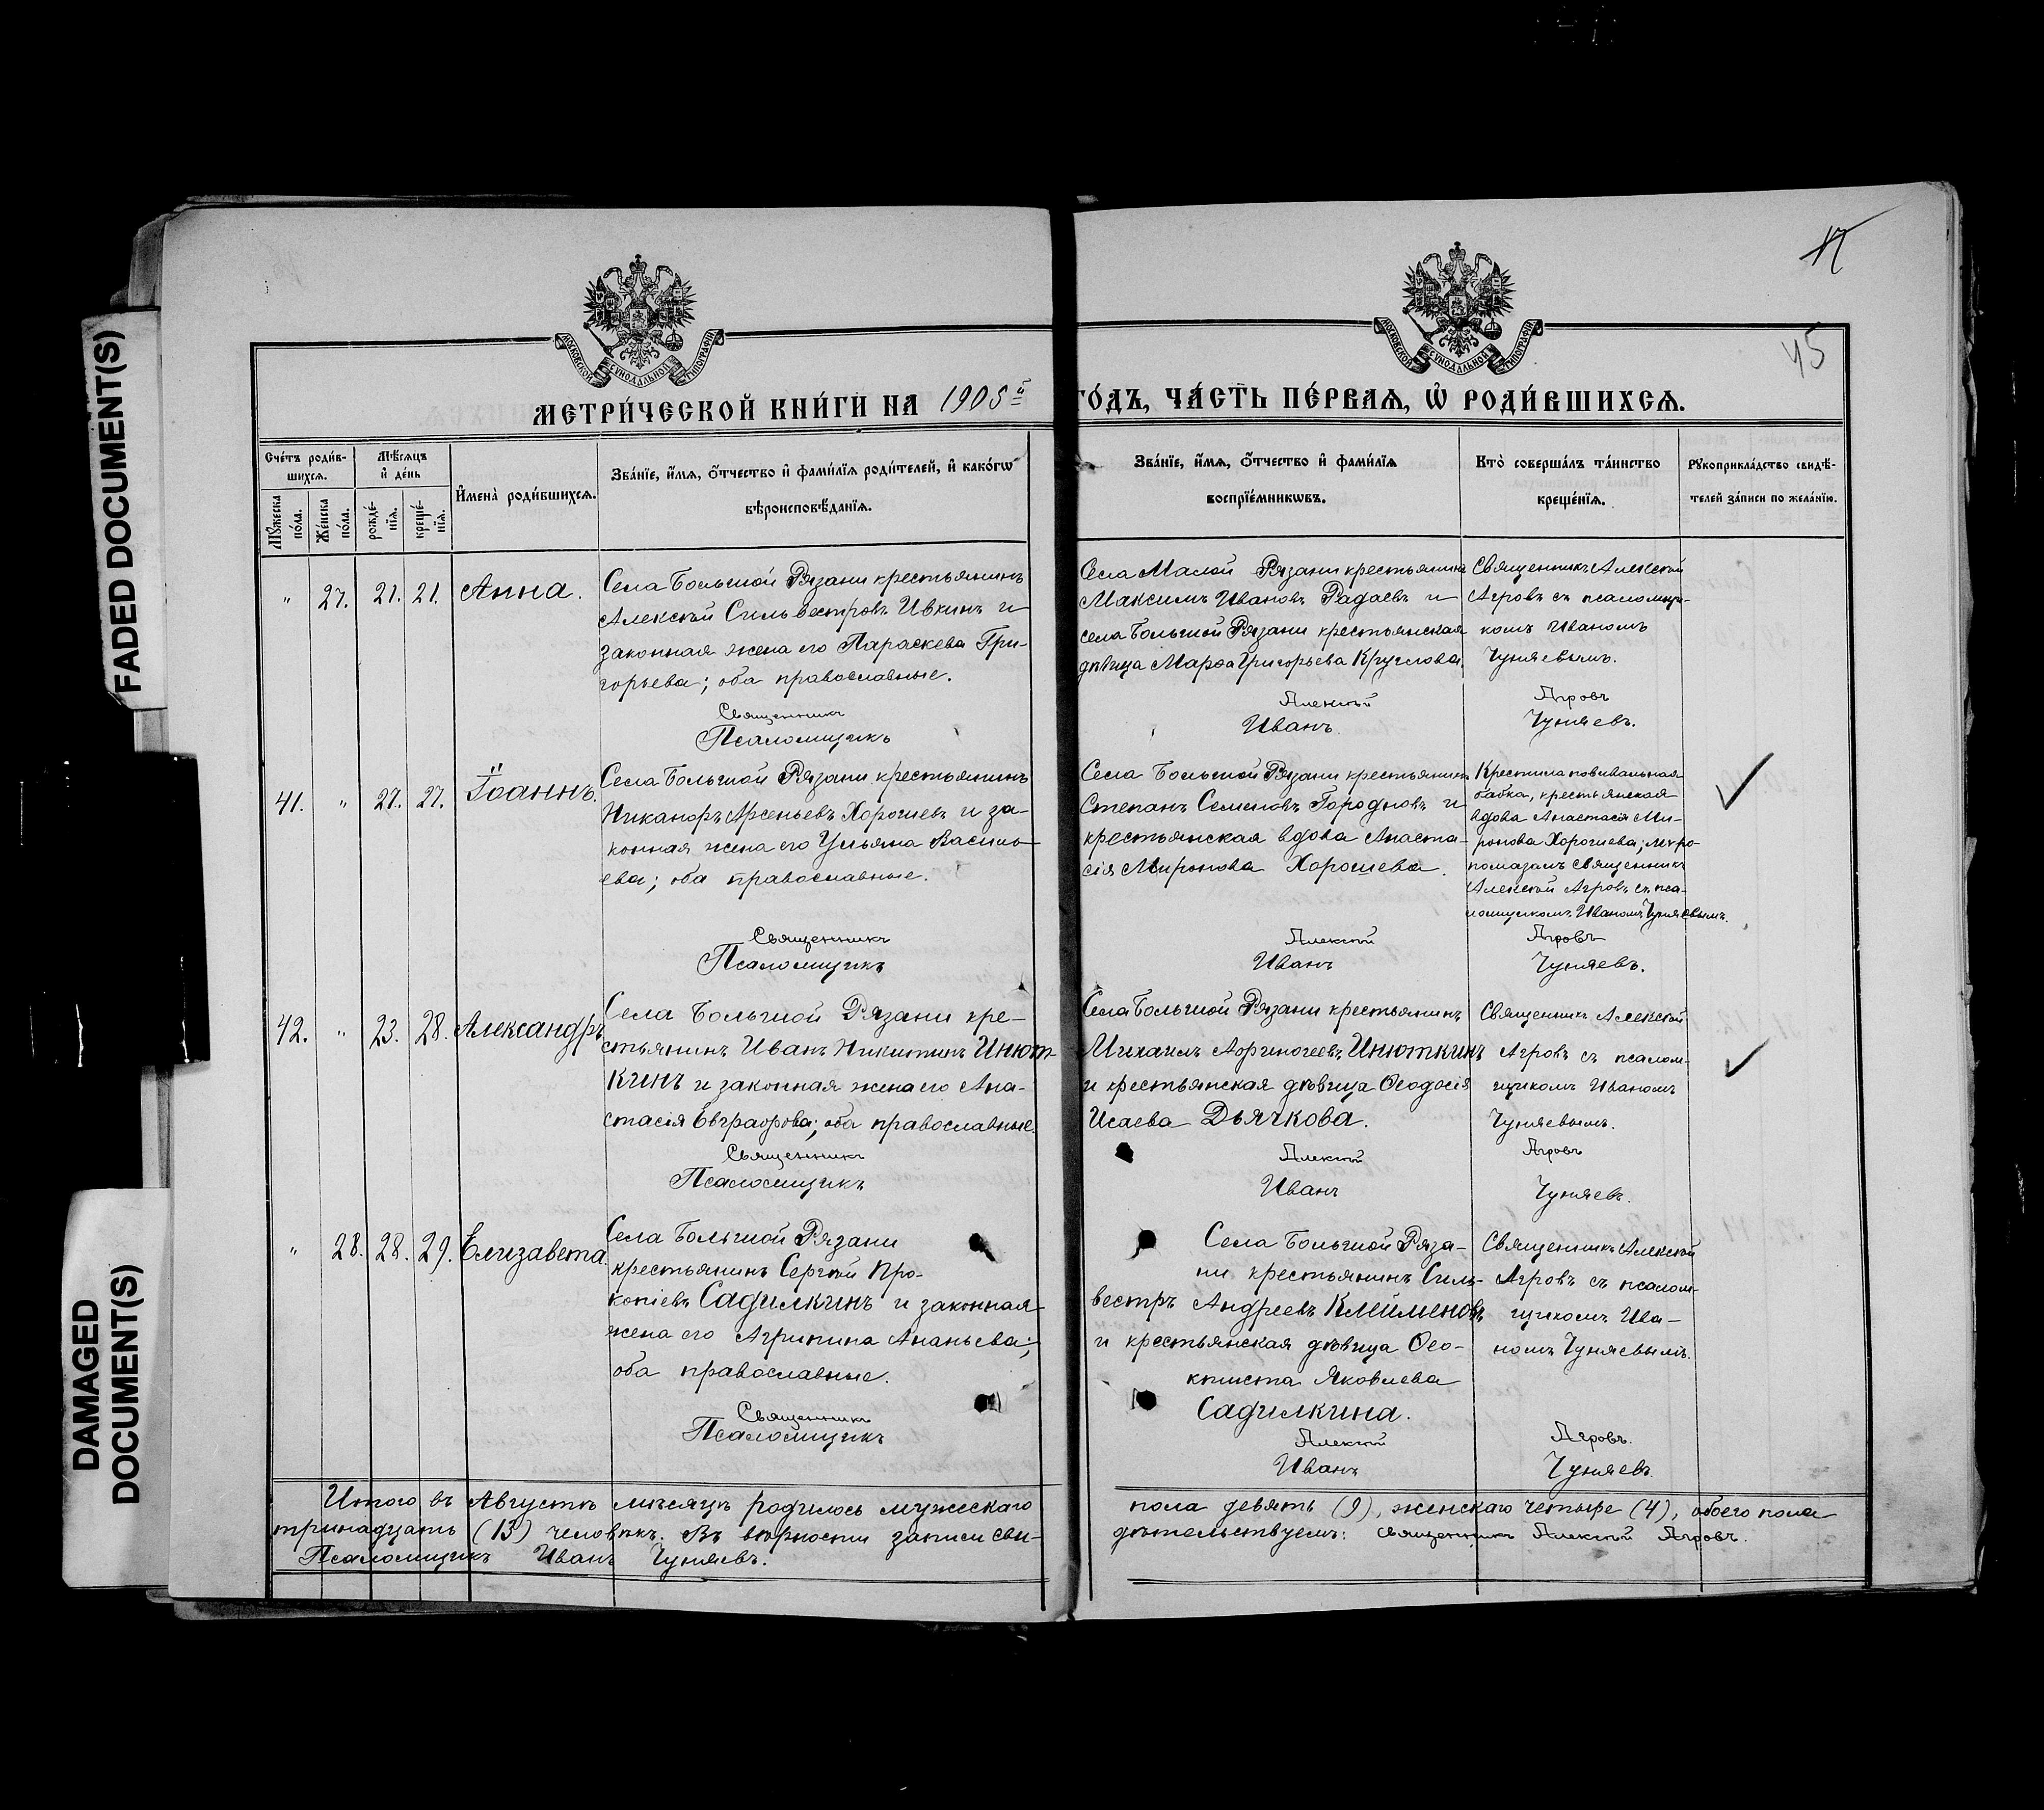 FADED DOCUMENT(S)
DAMAGED
DOCUMENT(S)
45
МОСКОВСКОЙ СѴНОДАЛЬНОЙ ТИПОГРАФІИ
МОСКОВСКОЙ СѴНОДАЛЬНОЙ ТИПОГРАФІИ
МЕТРИ́ЧЕСКОЙ КНИ́ГИ НА 1905й
ГО́ДЪ, ЧА́СТЬ ПЕ́РВАѦ, Ѡ҆ РОДИ́ВШИХСѦ.
Сче́тъ роди́в-
шихсѧ.
Мѣ́сѧцъ
и҆ де́нь
Мꙋ́жеска
по́ла.
Же́нска
по́ла.
рожде́-
нїѧ.
креще́-
нїѧ.
И҆мена̀ роди́вшихсѧ.
Зва́нїе, и҆́мѧ, ѻ҆́тчество и҆ фами́лїѧ роди́телей, и҆ како́гѡ
вѣроисповѣ́данїѧ.
Зва́нїе, и҆́мѧ, ѻ҆́тчество и҆ фами́лїѧ
воспрїе́мникѡвъ.
Кто̀ соверша́лъ та́инство
креще́нїѧ.
Рꙋкоприкла́дство свидѣ́-
телей за́писи по жела́нїю.
" 27. 21. 21. Анна.
Села Большой Рязани крестьянинъ
Алексѣй Сильвестровъ Ивкинъ и
законная жена его Параскева Гри-
горьева; оба православные.
Села Малой Рязани крестьянинъ
Максимъ Ивановъ Радаевъ и
села Большой Рязани крестьянская
дѣвица Марѳа Григорьева Круглова.
Священникъ Алексѣй
Агровъ съ псаломщи-
комъ Иваномъ
Чуняевымъ.
Священникъ Алексѣй Агровъ
Псаломщикъ Иванъ Чуняевъ.
41. " 27. 27. Іоаннъ.
Села Большой Рязани крестьянинъ
Никаноръ Арсеньевъ Хорошевъ и за-
конная жена его Ульяна Василь-
ева; оба православные.
Села Большой Рязани крестьянинъ
Степанъ Семеновъ Городновъ и
крестьянская вдова Анаста-
сія Миронова Хорошева.
Крестила повивальная
бабка, крестьянская
вдова Анастасія Ми-
ронова Хорошева; мѵро-
помазалъ священникъ
Алексѣй Агровъ съ пса-
ломщикомъ Иваномъ Чуняевымъ.
Священникъ Алексѣй Агровъ
Псаломщикъ Иванъ Чуняевъ.
42. " 23. 28. Александръ
Села Большой Рязани кре-
стьянинъ Иванъ Никитинъ Инют-
кинъ и законная жена его Ана-
стасія Евграфова; оба православные.
Села Большой Рязани крестьянинъ
Михаилъ Афиногеевъ Инюткинъ
и крестьянская дѣвица Ѳеодосія
Исаева Дьячкова.
Священникъ Алексѣй
Агровъ съ псалом-
щикомъ Иваномъ
Чуняевымъ.
Священникъ Алексѣй Агровъ
Псаломщикъ Иванъ Чуняевъ.
" 28. 28. 29. Елизавета.
Села Большой Рязани
крестьянинъ Сергѣй Про-
копіевъ Садилкинъ и законная
жена его Агрипина Ананьева;
оба православные.
Села Большой Ряза-
ни крестьянинъ Силь-
вестръ Андреевъ Клейменовъ
и крестьянская дѣвица Ѳео-
ктиста Яковлева
Садилкина.
Священникъ Алексѣй
Агровъ съ псалом-
щикомъ Ива-
номъ Чуняевымъ.
Священникъ Алексѣй Агровъ.
Псаломщикъ Иванъ Чуняевъ.
Итого въ Августѣ мѣсяцѣ родилось мужескаго пола девять (9), женскаго четыре (4), обоего пола
тринадцать (13) человѣкъ. Въ вѣрности записи сви- дѣтельствуемъ: священникъ Алексѣй Агровъ.
Псаломщикъ Иванъ Чуняевъ.